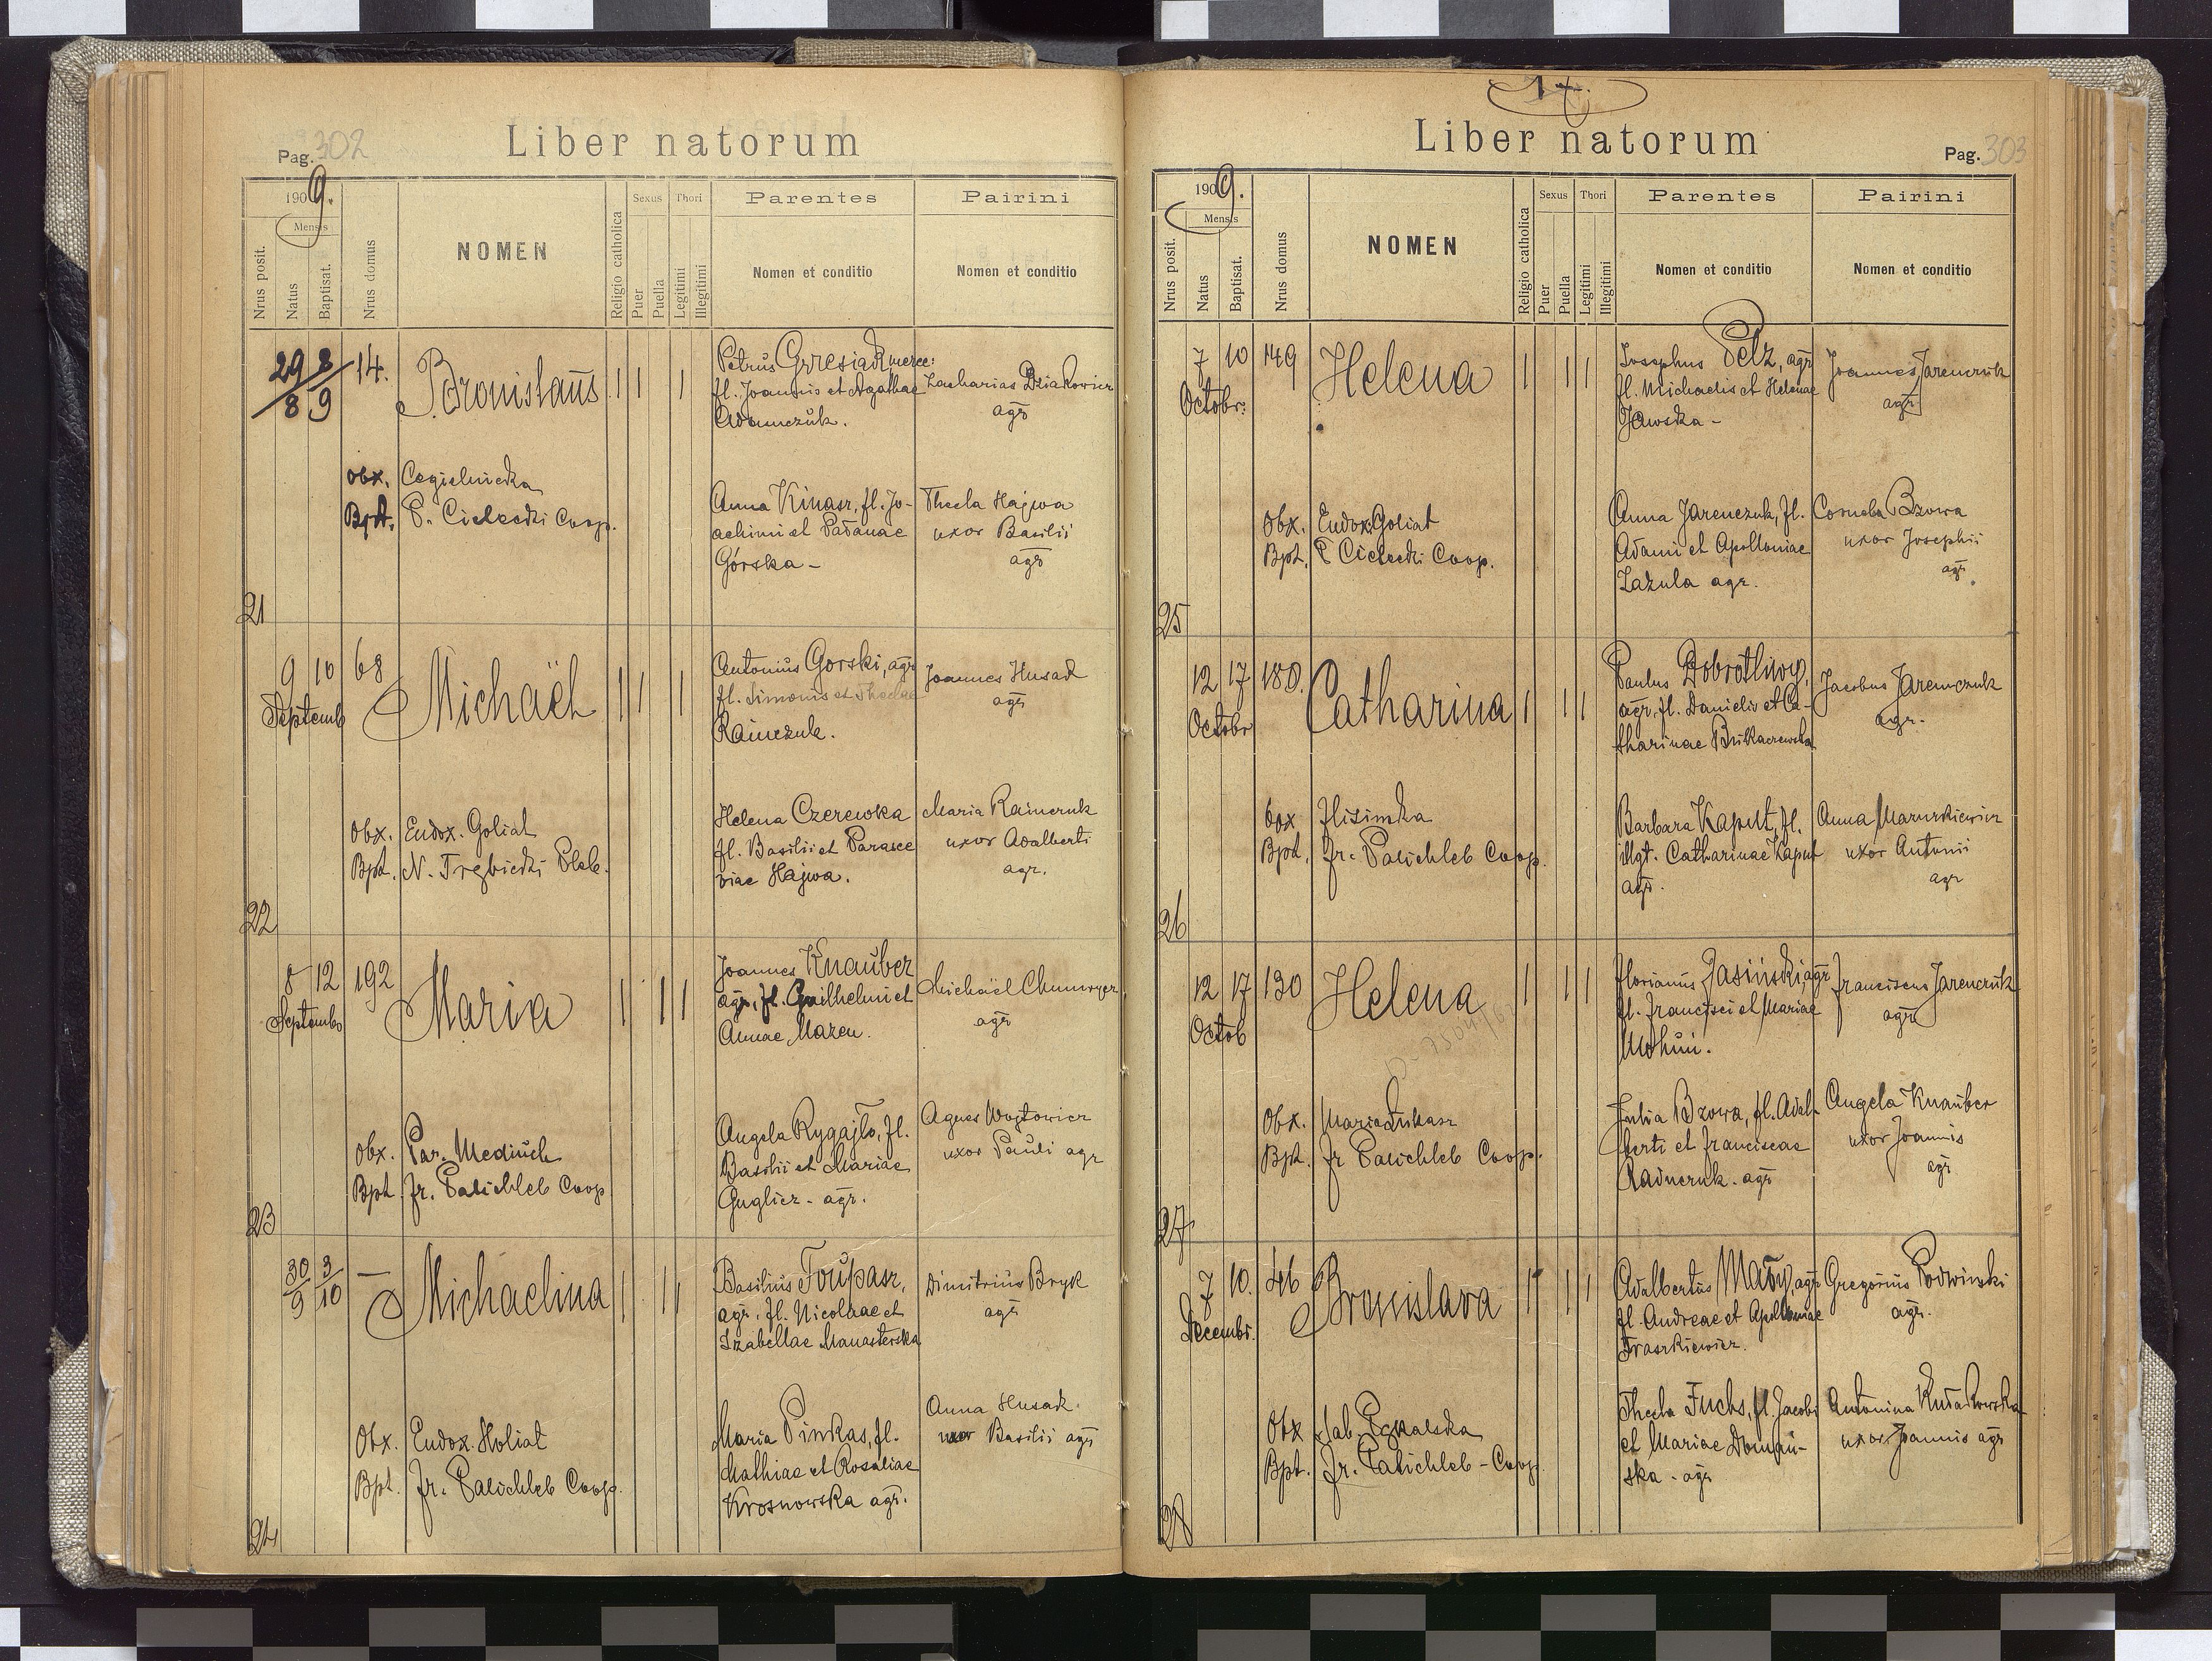 Pag. 302
Liber natorum
1909.
Mensis
Nrus posit.
Natus
Baptisat.
Nrus domus
NOMEN
Religio catholica
Sexus
Puer
Puella
Thori
Legitimi
Illegitimi
Parentes
Nomen et conditio
Pairini
Nomen et conditio
29/8 8/9 14. Bronislaus 1 1 1
Petrus Grzesiak
fl. Joannis et Agathae
Adamczuk.
Zacharias Dziakowicz
agr
obx. Cegielnicka
Bpt. P. Cielecki Coop.
Anna Kinasz, fl. Jo-
achimi et Paranae
Górska -
Thecla Hajwa
uxor Basilii
agr
21
9 10 68 Michaël 1 1 1
Septemb
Antonius Gorski, agr
fl. Simonis et Theclae
Rainczuk.
Joannes Husak
agr
obx. Eudox. Goliat
Bpt. N. Trębicki Pleb.
Helena Czerewka
fl. Basilii et Parasce
viae Hajwa.
Maria Rainczuk
uxor Adalberti
agr.
22
8 12 192 Maria 1 1 1
Septemb
Joannes Knauber
agr, fl. Guilhelmi et
Annae Mazen.
Michaël
agr
obx. Par. Mediuch
Bpt fr. Palichleb Coop
Angela Rygajlo, fl.
Basilii et Mariae
Guglicz - agr.
Agnes Wojtowicz
uxor Pauli agr
23
30/9 3/10 — Michaelina 1 1 1
Basilius Toupasz,
agr, fl. Nicolaae et
Izabellae Manasterska
Dimitrius Bryk
agr
Obx. Eudox. Holiat
Bpt. fr. Palichleb Coop.
Maria Pinkas, fl.
Mathiae et Rosaliae
Krosnowska agr.
Anna Husak
uxor Basilii agr
24
17.
Liber natorum
Pag. 303
1909.
Mensis
Nrus posit.
Natus
Baptisat.
Nrus domus
NOMEN
Religio catholica
Sexus
Puer
Puella
Thori
Legitimi
Illegitimi
Parentes
Nomen et conditio
Pairini
Nomen et conditio
7 10 149 Helena 1 1 1
Octobr:
Josephus Pelz, agr
fl. Michaelis et Helenae
Jawska -
Joannes Jarenczuk
agr
Obx. Eudox. Goliat
Bpt. P Cielecki Coop.
Anna Jarenczuk, fl.
Adami et Apolloniae
Zazula agr.
Cornela Bzowa
uxor Josephi
agr.
25
12 17 180. Catharina 1 1 1
Octobr
Paulus Dobrotliwy,
agr, fl. Danielis et Ca-
tharinae
Jacobus Jaremczuk
agr.
obx Hisimka
Bpt. fr. Palichleb Coop.
Barbara Kaput, fl.
illgt. Catharinae Kaput
agr.
Anna Mazurkiewicz
uxor Antonii
agr
26
12 17 130 Helena 1 1 1
Octob
Florianus Jasiński, agr
fl. Francisci et Mariae
Franciscus Jarenczuk
agr
Obx. Maria Lukasz
Bpt. fr Palichleb Coop.
Julia Bzowa, fl. Adal-
berti et Franciscae
Rainczuk. agr
Angela Knauber
uxor Joannis
agr.
27
7 10. 46 Bronislava 1 1 1
Decembr.
Adalbertus Mały, agr
fl. Andreae et Apolloniae
Fraszkiewicz.
Gregorius Podwinski
agr.
Obx
Bpt. fr. Palichleb - Coop.
Thecla Fuchs, fl. Jacobi
et Mariae Domań-
ska - agr
Antonina
uxor Joannis agr
28